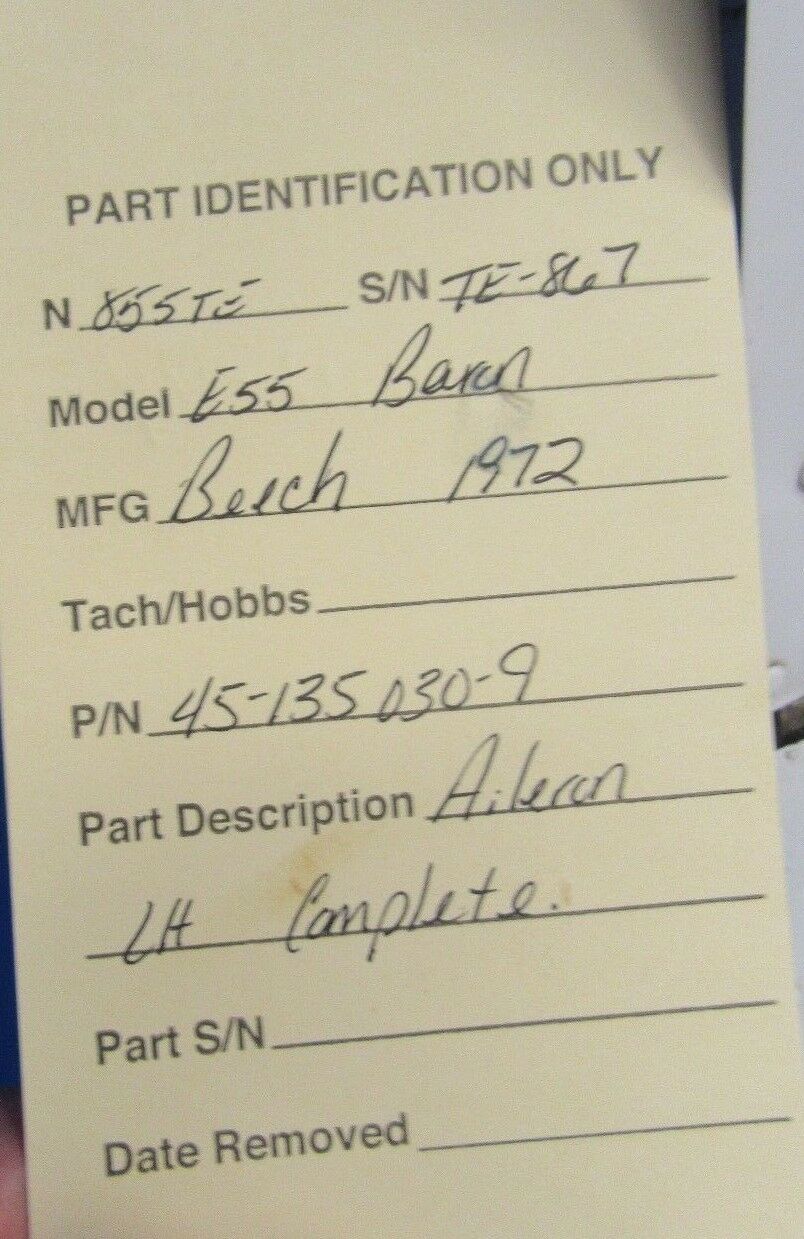 PART IDENTIFICATION ONLY
N 855TE S/N TE-867
Model E55 Baron
MFG Beech 1972
Tach/Hobbs
P/N 45-135030-9
Part Description Aileron
LH Complete.
Part S/N
Date Removed